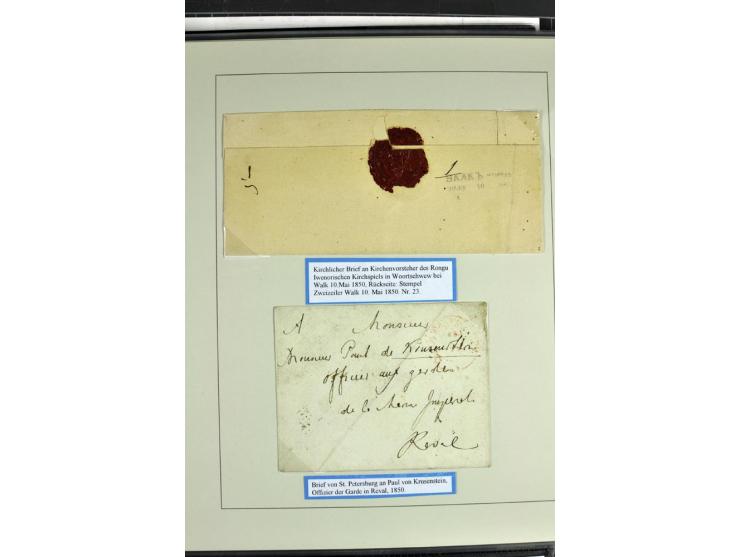 ВАЛКЪ
10
Kirchlicher Brief an Kirchenvorsteher des Rongu
Iwenorischen Kirchspiels in Woortschwew bei
Walk 10.Mai 1850, Rückseite: Stempel
Zweizeiler Walk 10. Mai 1850. Nr. 23.
A Monsieur
Monsieur Paul de Krusenstern
officier aux gardes
de la
Reval
Brief von St. Petersburg an Paul von Krusenstein,
Offizier der Garde in Reval, 1850.